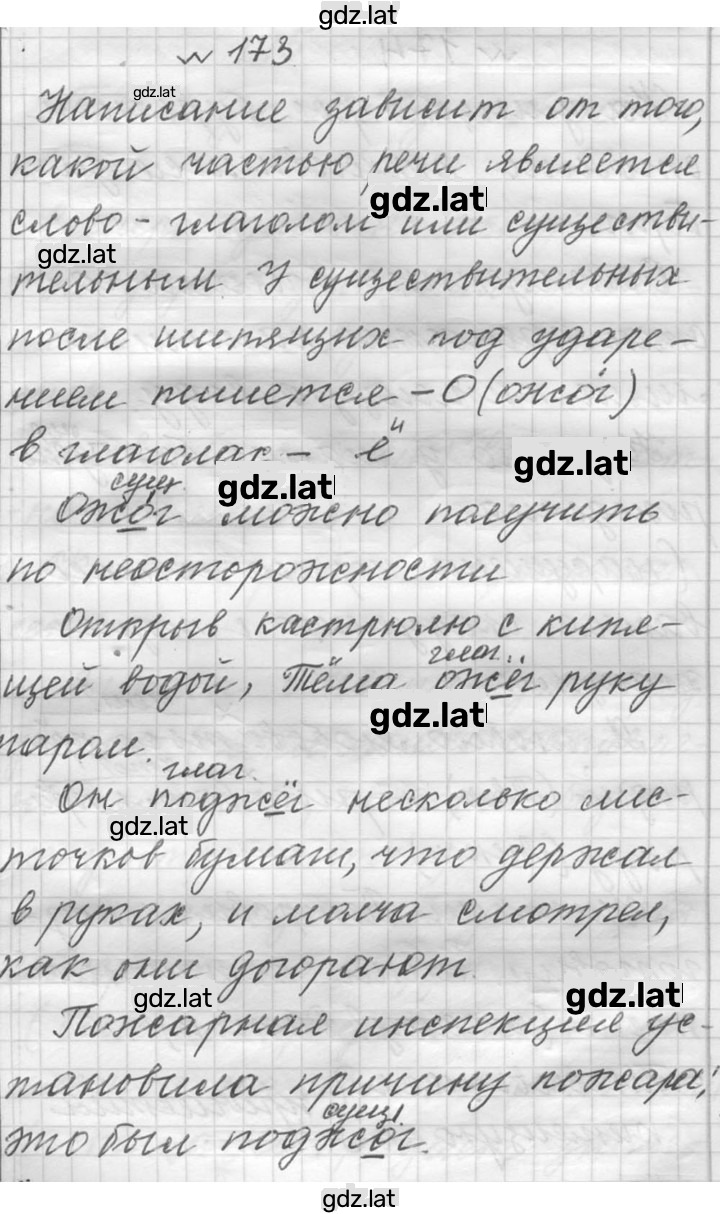 gdz.lat
№ 173
gdz.lat
Написание зависит от того,
какой частью речи является
gdz.lat
слово - глаголом или существи-
gdz.lat
тельным У существительных
после шипящих под ударе-
нием пишется - О (ожо́г)
в глаголах - ё"
gdz.lat
gdz.lat
сущ.
Ожо́г можно получить
по неосторожности
Открыв кастрюлю с кипя-
глаг.
щей водой, Тёма ожёг руку
gdz.lat
паром.
глаг.
Он поджёг несколько лис-
gdz.lat
точков бумаги, что держал
в руках, и молча смотрел,
как они догорают.
gdz.lat
gdz.lat
Пожарная инспекция ус-
тановила причину пожара:
сущ.
это был поджо́г.
gdz.lat